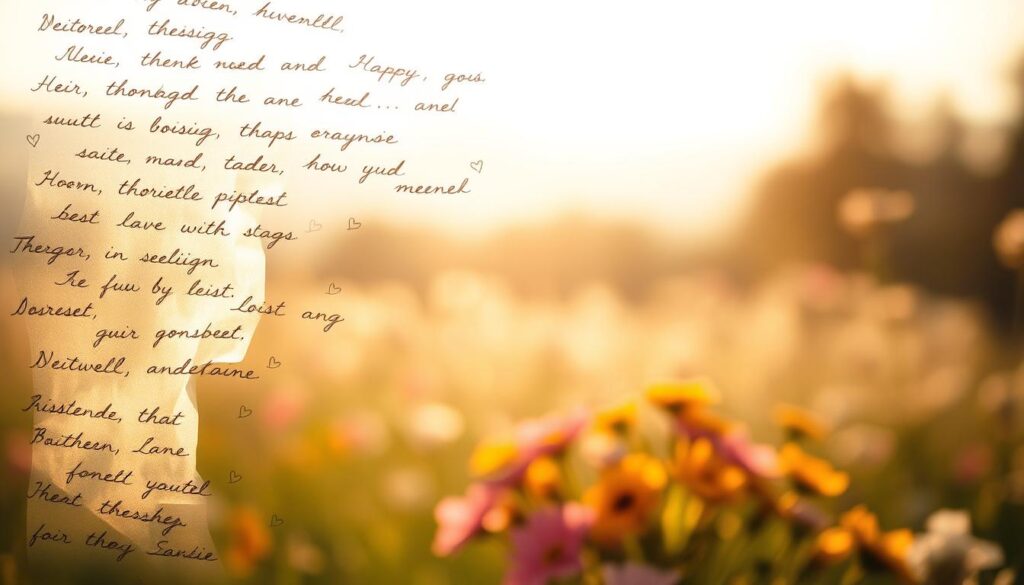 Neitoreel, thessigg
Neuie, thenk nued and Happy, gous.
Heir, thonbagd the ane heul... anel
suutt is boisiig, thaps eraynse
saite, masd, tader, how yud
meenek
Hoorn, thorietle piptest
best lave with stags
Thergor, in seeliign
Tre fuu by leist.
Loist ang
Dosreset,
guir gonsbeet,
Neitwell, andetaine
Trisstende, that
Baithern, Lane
fonelt yautel
Thert thersshey
foir thoy Sanlie